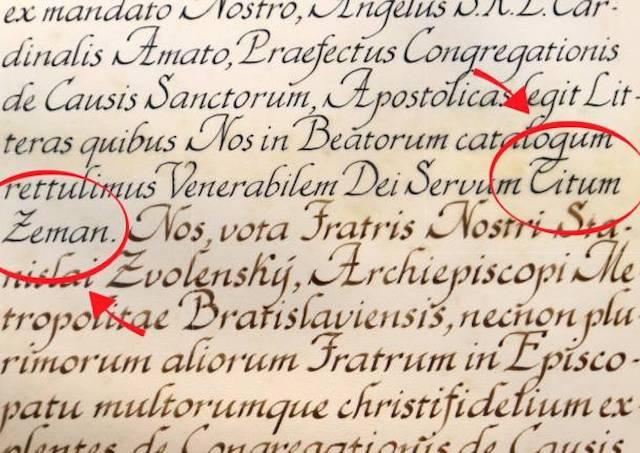 ex mandato Nostro, Angelus S.R.E. Car-
dinalis Amato, Praefectus Congregationis
de Causis Sanctorum, Apostolicas legit Lit-
teras quibus Nos in Beatorum catalogum
rettulimus Venerabilem Dei Servum Titum
Zeman. Nos, vota Fratris Nostri Sta-
nislai Zvolenský, Archiepiscopi Me
tropolitae Bratislaviensis, necnon plu-
rimorum aliorum Fratrum in Episco-
patu multorumque christifidelium ex-
plentes, de Congregationis de Causis